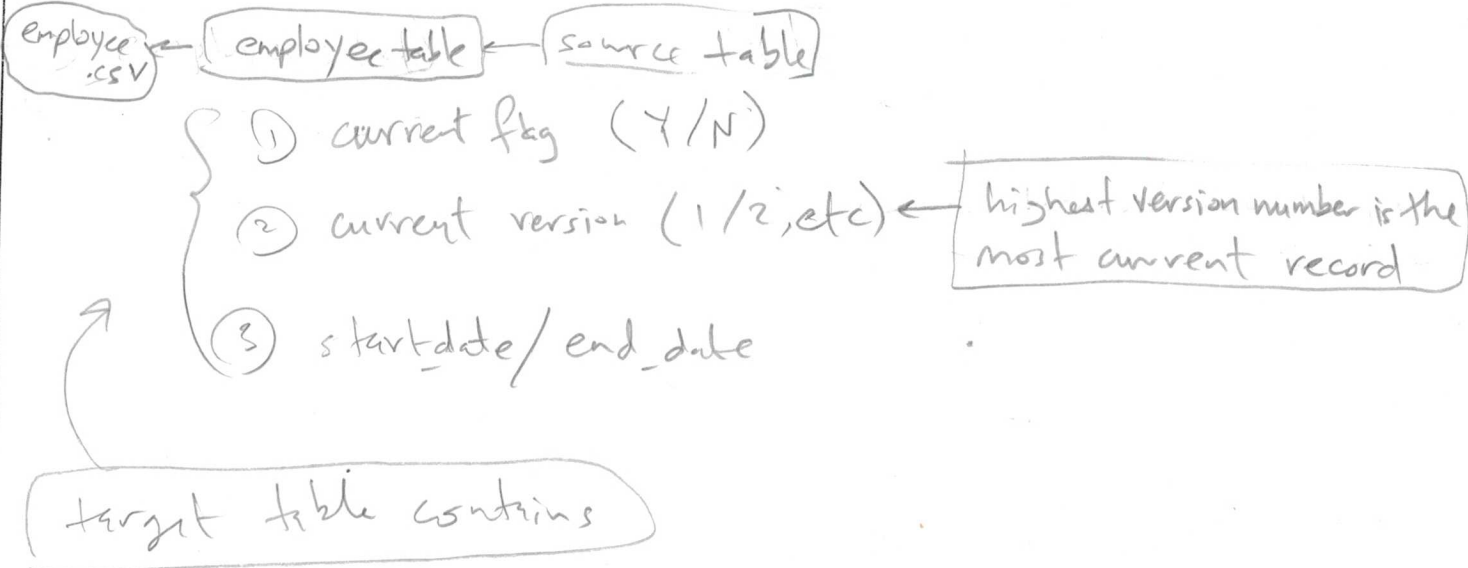 employee employee table source table
.csv
① current flag (Y/N)
② current version (1/2, etc) highest version number is the
most current record
③ start_date/end_date
target table contains